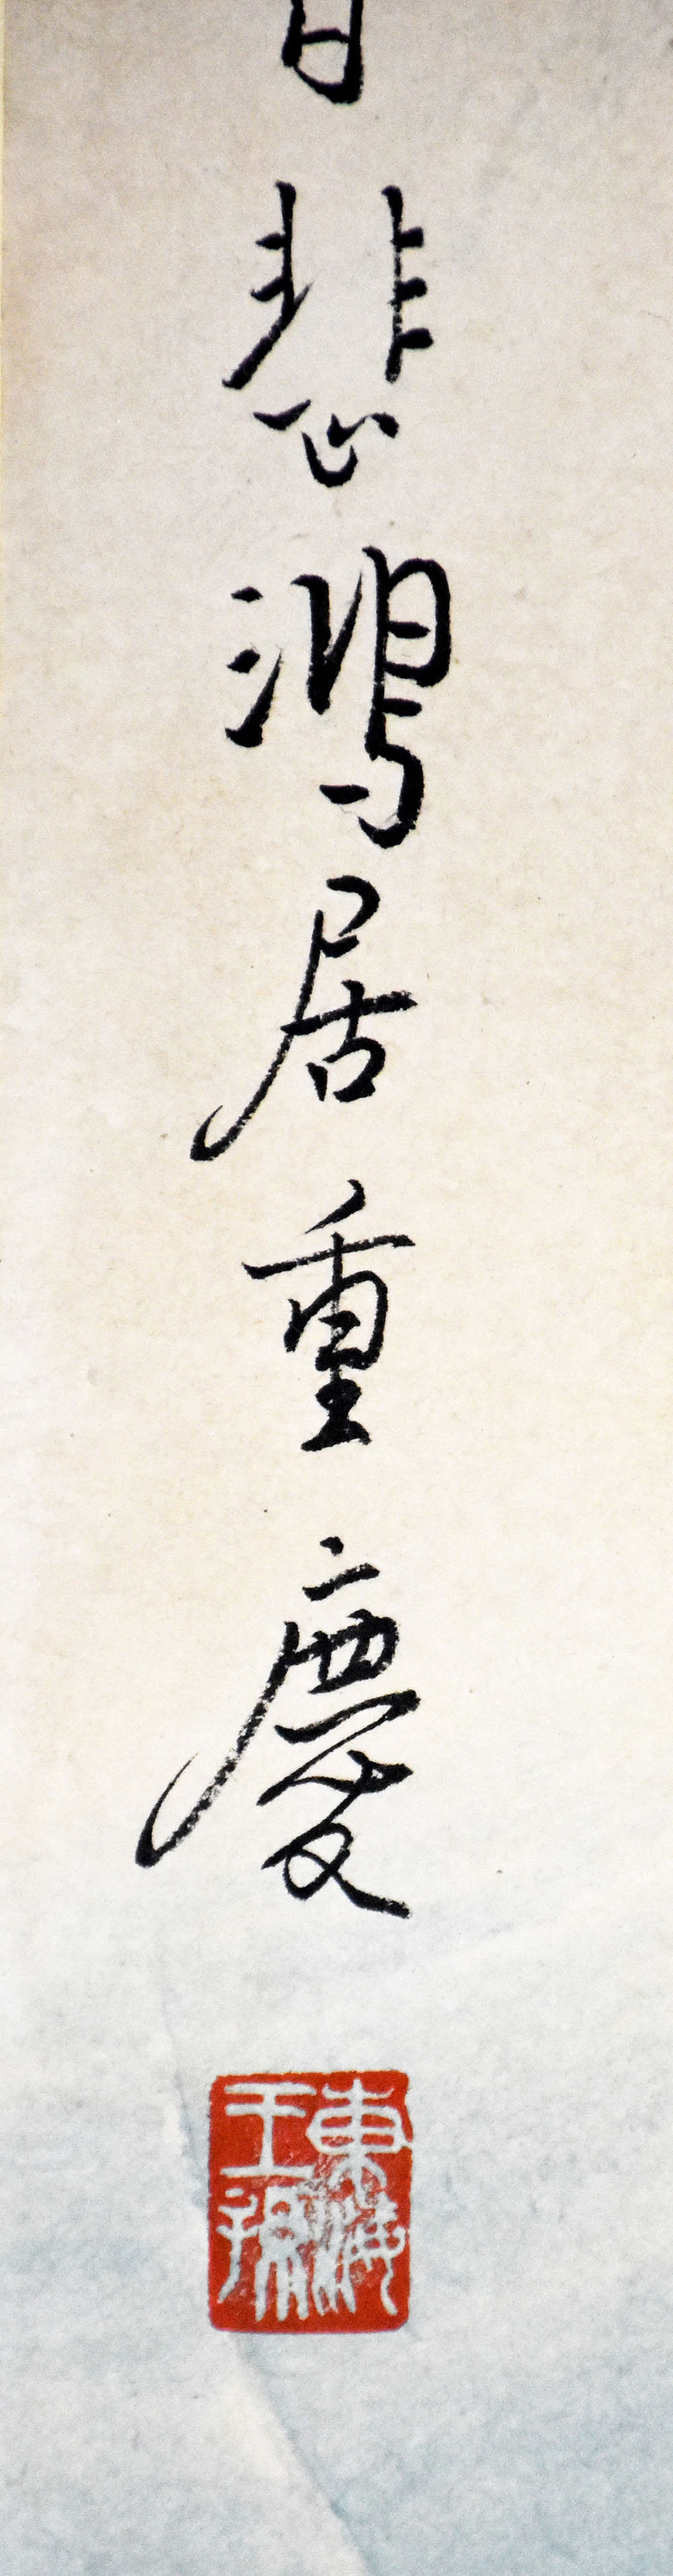 悲鴻居重慶
東海王孫